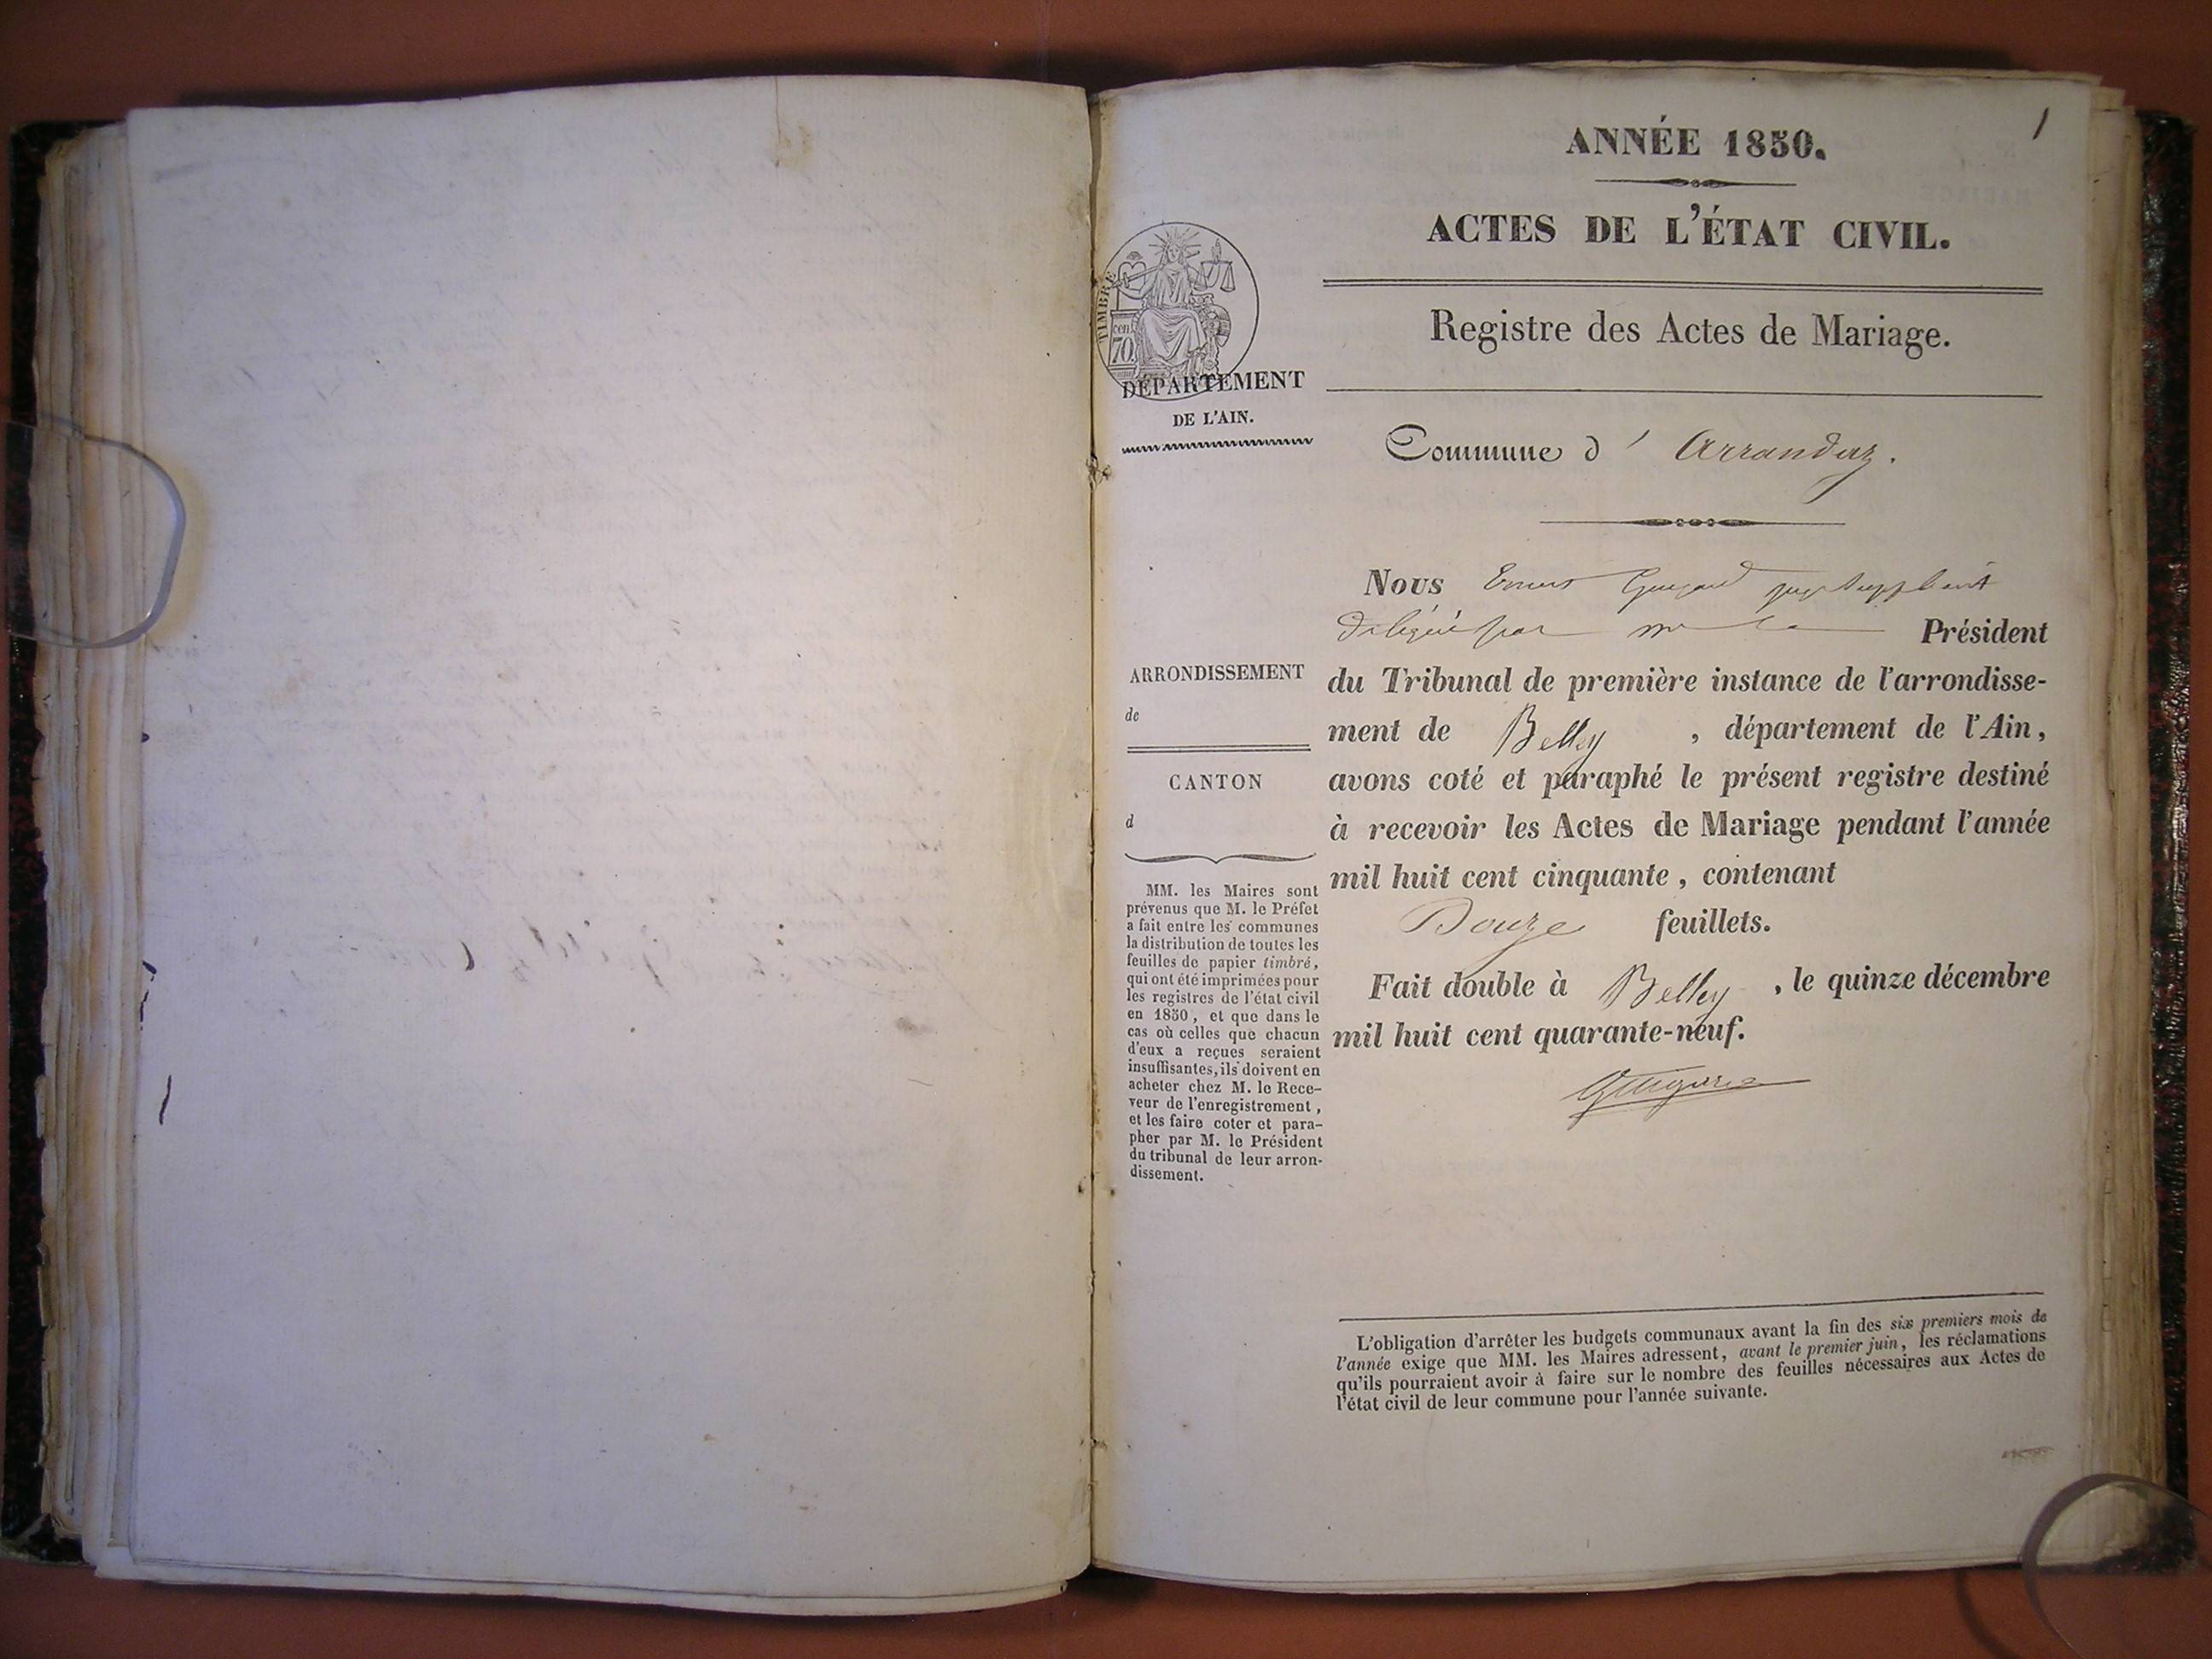 1
ANNÉE 1850.
ACTES DE L'ÉTAT CIVIL.
Registre des Actes de Mariage.
TIMBRE
cen.
70.
DÉPARTEMENT
DE L'AIN.
Commune d' Arrandaz.
ARRONDISSEMENT
de
CANTON
d
MM. les Maires sont
prévenus que M. le Préfet
a fait entre les communes
la distribution de toutes les
feuilles de papier timbré,
qui ont été imprimées pour
les registres de l'état civil
en 1850, et que dans le
cas où celles que chacun
d'eux a reçues seraient
insuffisantes, ils doivent en
acheter chez M. le Rece-
veur de l'enregistrement,
et les faire coter et para-
pher par M. le Président
du tribunal de leur arron-
dissement.
Nous juge suppléant
délégué par mr le Président
du Tribunal de première instance de l'arrondisse-
ment de Belley, département de l'Ain,
avons coté et paraphé le présent registre destiné
à recevoir les Actes de Mariage pendant l'année
mil huit cent cinquante, contenant
Douze feuillets.
Fait double à Belley, le quinze décembre
mil huit cent quarante-neuf.
L'obligation d'arrêter les budgets communaux avant la fin des six premiers mois de
l'année exige que MM. les Maires adressent, avant le premier juin, les réclamations
qu'ils pourraient avoir à faire sur le nombre des feuilles nécessaires aux Actes de
l'état civil de leur commune pour l'année suivante.